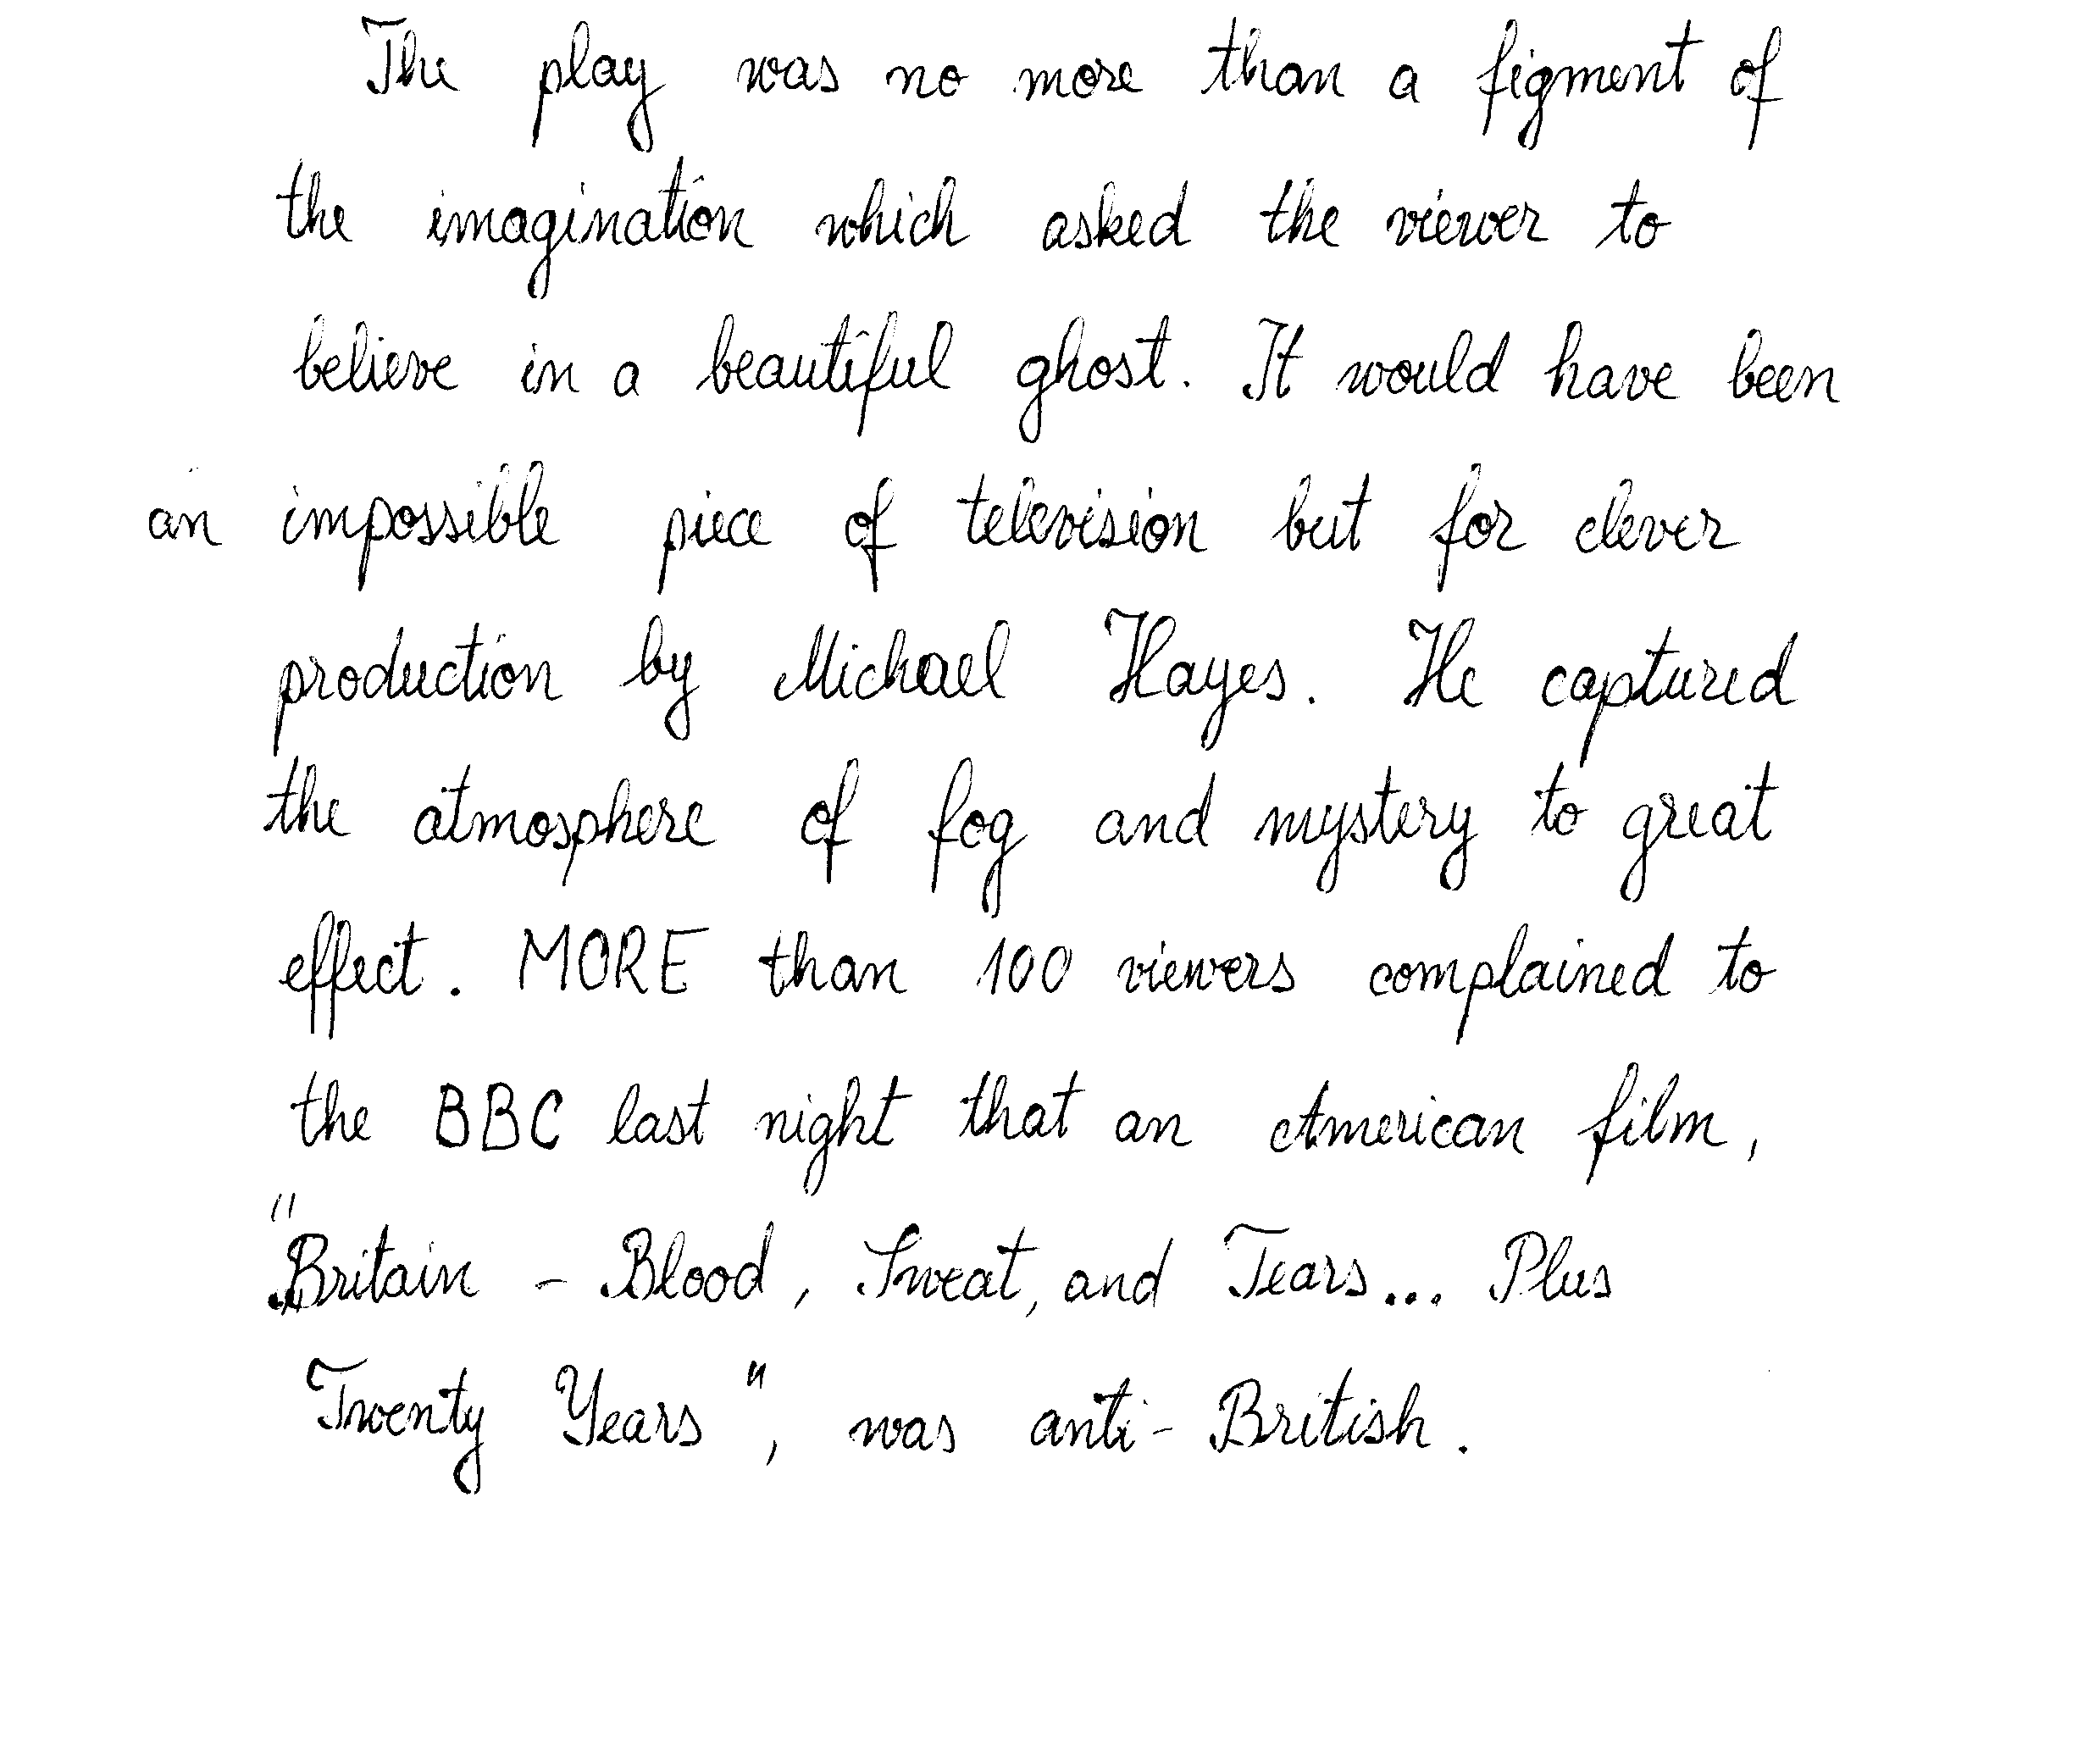 The play was no more than a figment of
the imagination which asked the viewer to
believe in a beautiful ghost. It would have been
an impossible piece of television but for clever
production by Michael Hayes. He captured
the atmosphere of fog and mystery to great
effect. MORE than 100 viewers complained to
the BBC last night that an American film,
"Britain - Blood, Sweat, and Tears... Plus
Twenty Years", was anti-British.